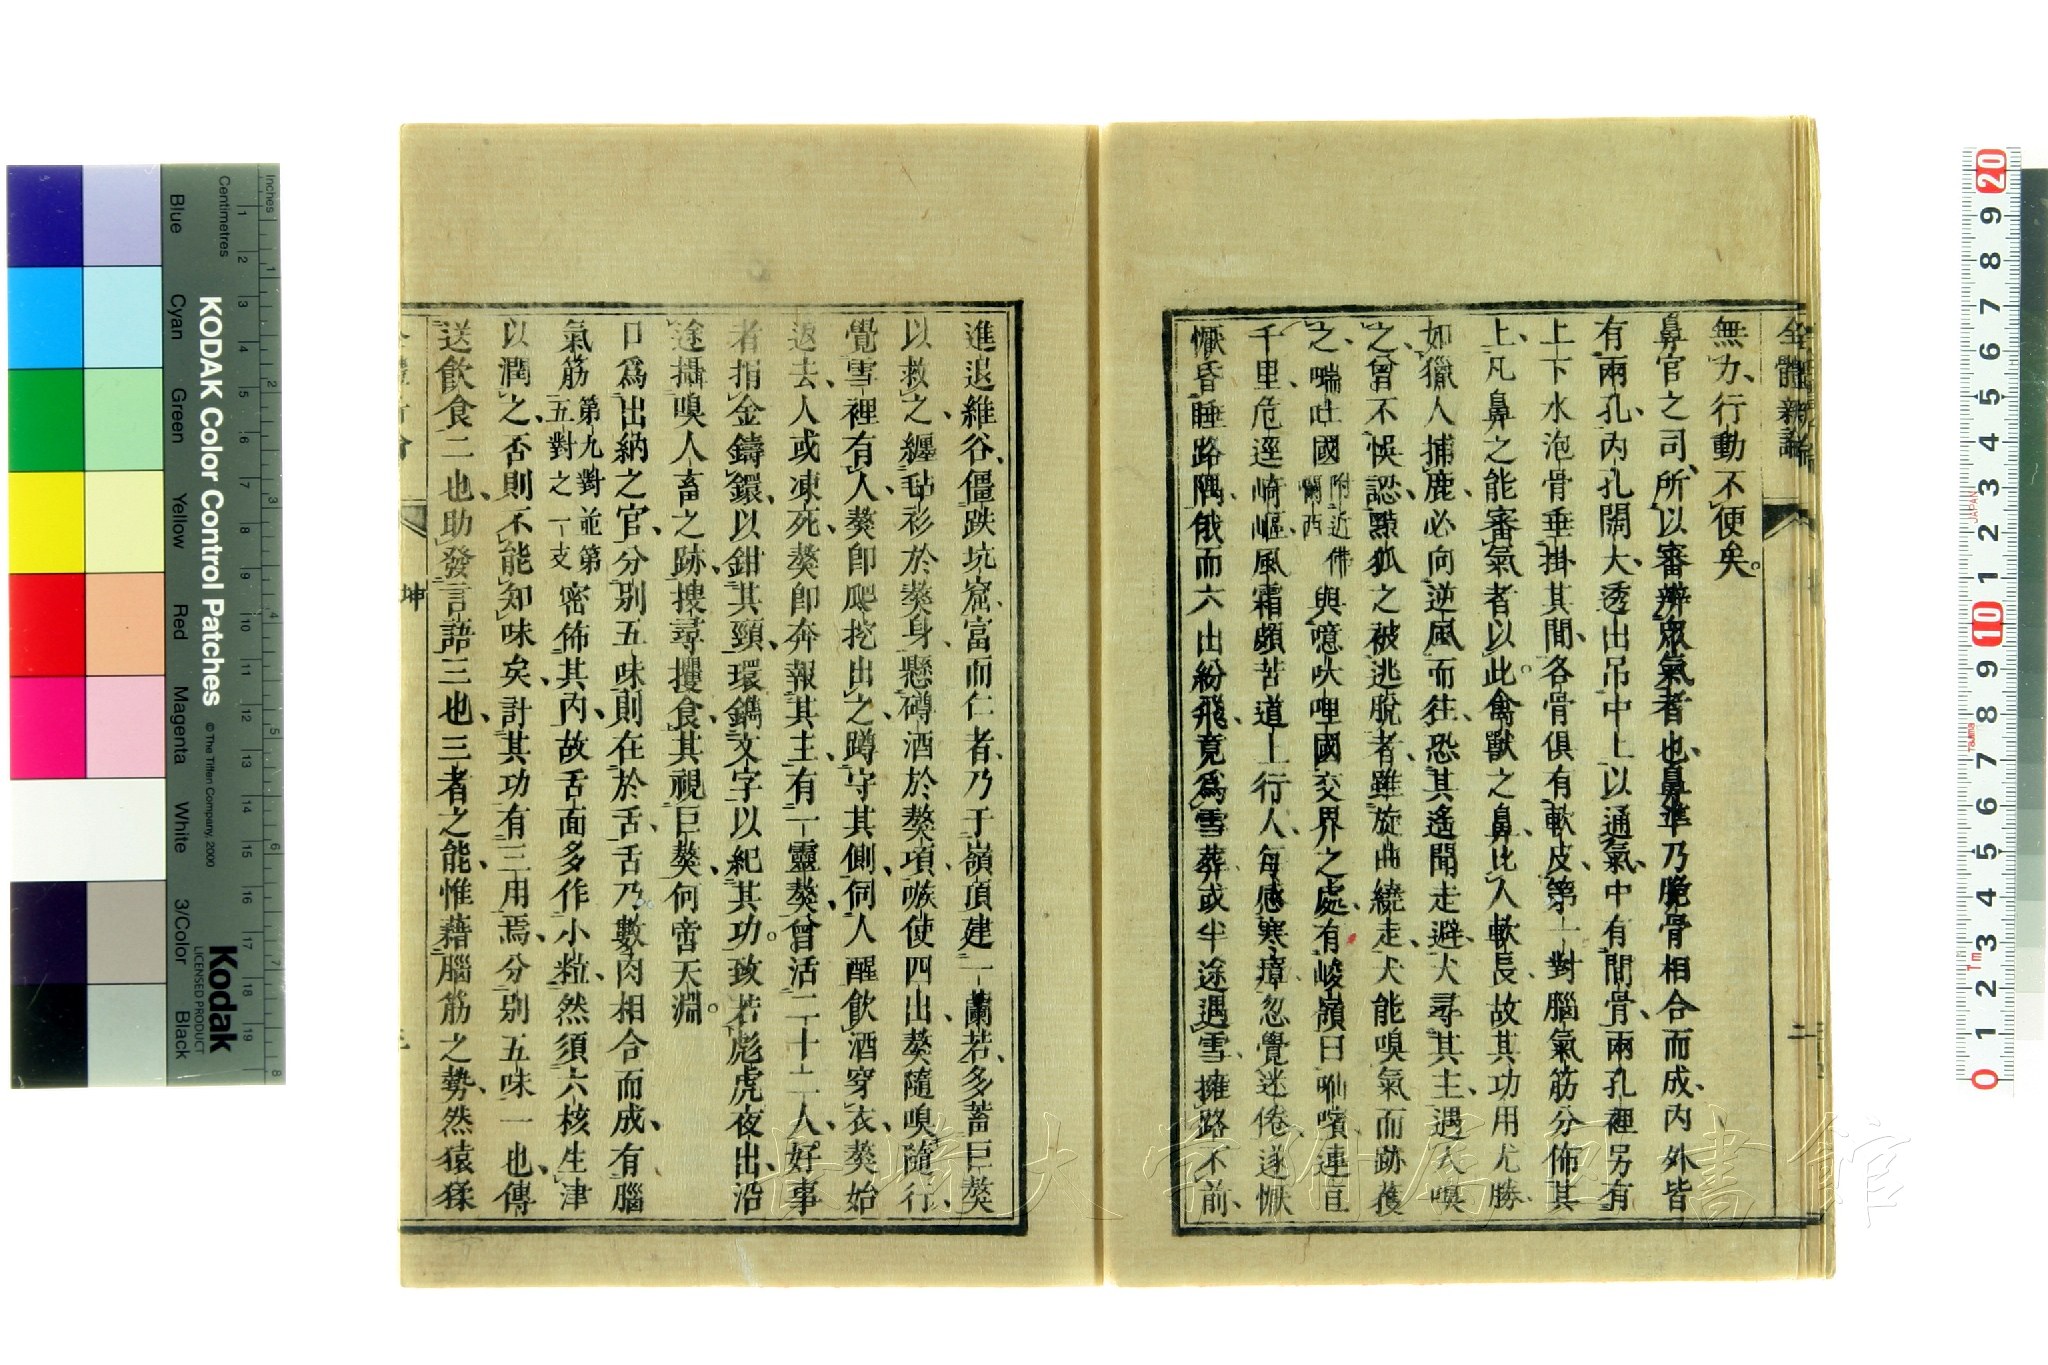 全體新論
二
無力、行動不便矣。
鼻官之司、所以審辨眾氣者也、鼻準乃脆骨相合而成、內外皆
有兩孔、內孔闊大、透出吊中上以通氣、中有間骨、兩孔裡另有
上下水泡骨垂掛其間、各骨俱有軟皮、第一對腦氣筋分佈其
上、凡鼻之能審氣者以此。禽獸之鼻、比人軟長、故其功用尤勝、
如獵人捕鹿、必向逆風而往、恐其遙聞走避、犬尋其主、遇人嗅
之、曾不悞認、黠狐之被逃脫者、雖旋曲繞走、犬能嗅氣而跡獲
之、喘吐國附近佛蘭西與噫吠哩國交界之處、有峻嶺曰咖嬪、連亘
千里、危逕崎嶇、風霜頗苦、道上行人、每感寒瘴、忽覺迷倦、遂愀
愀昏睡路隅、俄而六出紛飛、竟為雪葬、或半途遇雪、擁路不前、
進退維谷、僵跌坑窟、富而仁者、乃于嶺頂建一蘭若、多蓄巨獒
以救之、纏毡衫於獒身、懸磚酒於獒項、嗾使四出、獒隨嗅隨行、
覺雪裡有人、獒卽爬挖出之、蹲守其側、伺人醒飲酒穿衣、獒始
返去、人或凍死、獒卽奔報其主、有一靈獒、曾活二十二人、好事
者捐金鑄鐶、以鉗其頸、環鐫文字以紀其功。致若彪虎夜出、沿
途攝嗅人畜之跡、搜尋攫食、其視巨獒、何啻天淵。
口為出納之官、分別五味、則在於舌、舌乃數肉相合而成、有腦
氣筋第九對並第五對之一支密佈其內、故舌面多作小粒、然須六核生津
以潤之、否則不能知味矣、計其功有三用焉、分別五味一也、傳
送飲食二也、助發言語三也、三者之能、惟藉腦筋之勢、然猿猱
坤
KODAK Color Control Patches
© The Tiffen Company, 2000
Kodak
LICENSED PRODUCT
Inches
Centimetres
Blue Cyan Green Yellow Red Magenta White 3/Color Black
長崎大学附属図書館